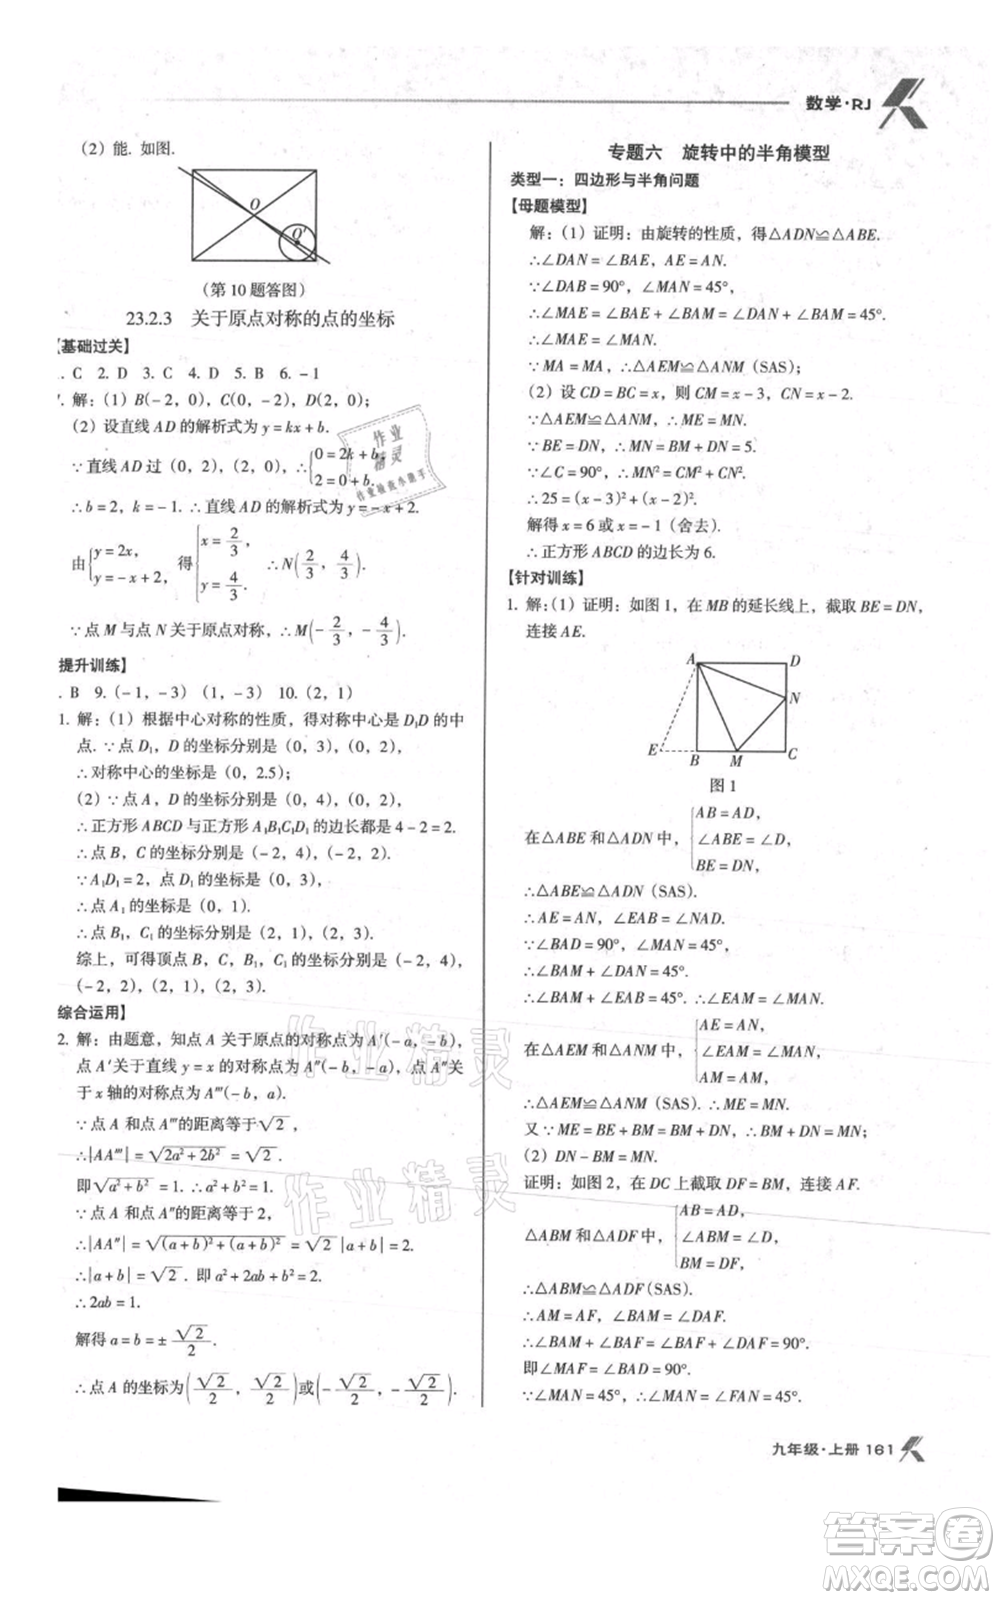 数学·RJ
(2)能. 如图.
O
O′
(第10题答图)
23.2.3 关于原点对称的点的坐标
【基础过关】
. C 2. D 3. C 4. D 5. B 6. -1
. 解:(1)B(-2,0),C(0,-2),D(2,0);
(2)设直线AD的解析式为y=kx+b.
∵直线AD过(0,2),(2,0),∴{0=2k+b, 2=0+b.
∴b=2,k=-1. ∴直线AD的解析式为y=-x+2.
由{y=2x, y=-x+2, 得{x=2/3, y=4/3. ∴N(2/3, 4/3).
∵点M与点N关于原点对称,∴M(-2/3, -4/3).
提升训练】
. B 9.(-1,-3) (1,-3) 10.(2,1)
1. 解:(1)根据中心对称的性质,得对称中心是D₁D的中
点. ∵点D₁,D的坐标分别是(0,3),(0,2),
∴对称中心的坐标是(0,2.5);
(2)∵点A,D的坐标分别是(0,4),(0,2),
∴正方形ABCD与正方形A₁B₁C₁D₁的边长都是4-2=2.
∴点B,C的坐标分别是(-2,4),(-2,2).
∵A₁D₁=2,点D₁的坐标是(0,3),
∴点A₁的坐标是(0,1).
∴点B₁,C₁的坐标分别是(2,1),(2,3).
综上,可得顶点B,C,B₁,C₁的坐标分别是(-2,4),
(-2,2),(2,1),(2,3).
综合运用】
2. 解:由题意,知点A关于原点的对称点为A′(-a,-b),
点A′关于直线y=x的对称点为A″(-b,-a),点A″关
于x轴的对称点为A‴(-b,a).
∵点A和点A‴的距离等于√2,
∴|AA‴|=√(2a²+2b²)=√2.
即√(a²+b²)=1. ∴a²+b²=1.
∵点A和点A″的距离等于2,
∴|AA″|=√((a+b)²+(a+b)²)=√2|a+b|=2.
∴|a+b|=√2. 即a²+2ab+b²=2.
∴2ab=1.
解得a=b=±√2/2.
∴点A的坐标为(√2/2, √2/2)或(-√2/2, -√2/2).
专题六 旋转中的半角模型
类型一:四边形与半角问题
【母题模型】
解:(1)证明:由旋转的性质,得△ADN≌△ABE.
∴∠DAN=∠BAE,AE=AN.
∵∠DAB=90°,∠MAN=45°,
∴∠MAE=∠BAE+∠BAM=∠DAN+∠BAM=45°.
∴∠MAE=∠MAN.
∵MA=MA,∴△AEM≌△ANM(SAS);
(2)设CD=BC=x,则CM=x-3,CN=x-2.
∵△AEM≌△ANM,∴ME=MN.
∵BE=DN,∴MN=BM+DN=5.
∵∠C=90°,∴MN²=CM²+CN².
∴25=(x-3)²+(x-2)².
解得x=6或x=-1(舍去).
∴正方形ABCD的边长为6.
【针对训练】
1. 解:(1)证明:如图1,在MB的延长线上,截取BE=DN,
连接AE.
A
D
N
E
B
M
C
图1
在△ABE和△ADN中,{AB=AD, ∠ABE=∠D, BE=DN,
∴△ABE≌△ADN(SAS).
∴AE=AN,∠EAB=∠NAD.
∵∠BAD=90°,∠MAN=45°,
∴∠BAM+∠DAN=45°.
∴∠BAM+∠EAB=45°. ∴∠EAM=∠MAN.
在△AEM和△ANM中,{AE=AN, ∠EAM=∠MAN, AM=AM,
∴△AEM≌△ANM(SAS). ∴ME=MN.
又∵ME=BE+BM=BM+DN,∴BM+DN=MN;
(2)DN-BM=MN.
证明:如图2,在DC上截取DF=BM,连接AF.
在△ABM和△ADF中,{AB=AD, ∠ABM=∠D, BM=DF,
∴△ABM≌△ADF(SAS).
∴AM=AF,∠BAM=∠DAF.
∴∠BAM+∠BAF=∠BAF+∠DAF=90°.
即∠MAF=∠BAD=90°.
∵∠MAN=45°,∴∠MAN=∠FAN=45°.
九年级·上册 161
作业精灵
作业精灵
作业精灵
作业检查小助手
答案卷
MXQE.COM